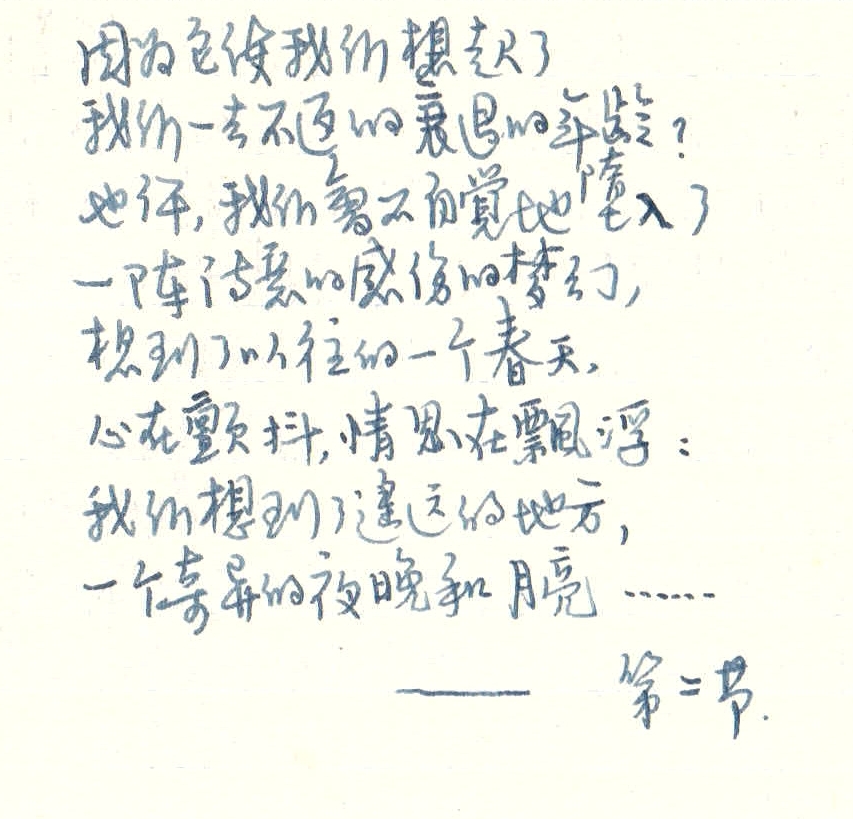 因为它使我们想起了
我们一去不返的衰退的年龄？
也许，我们会不自觉地堕入了
一阵诗意的感伤的梦幻，
想到了以往的一个春天，
心在颤抖，情思在飘浮：
我们想到了遥远的地方，
一个奇异的夜晚和月亮……
—— 第二节.